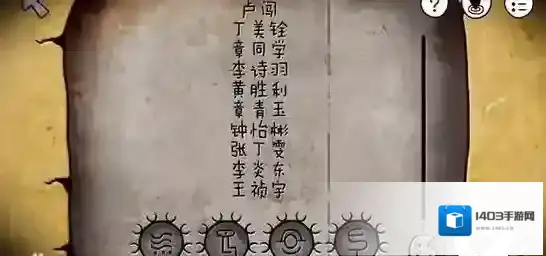 卢闯
丁美铨
章同学
李诗羽
黄胜利
章青玉
钟怡彬
张丁雯
李炎东
王祯宇
1403手游网